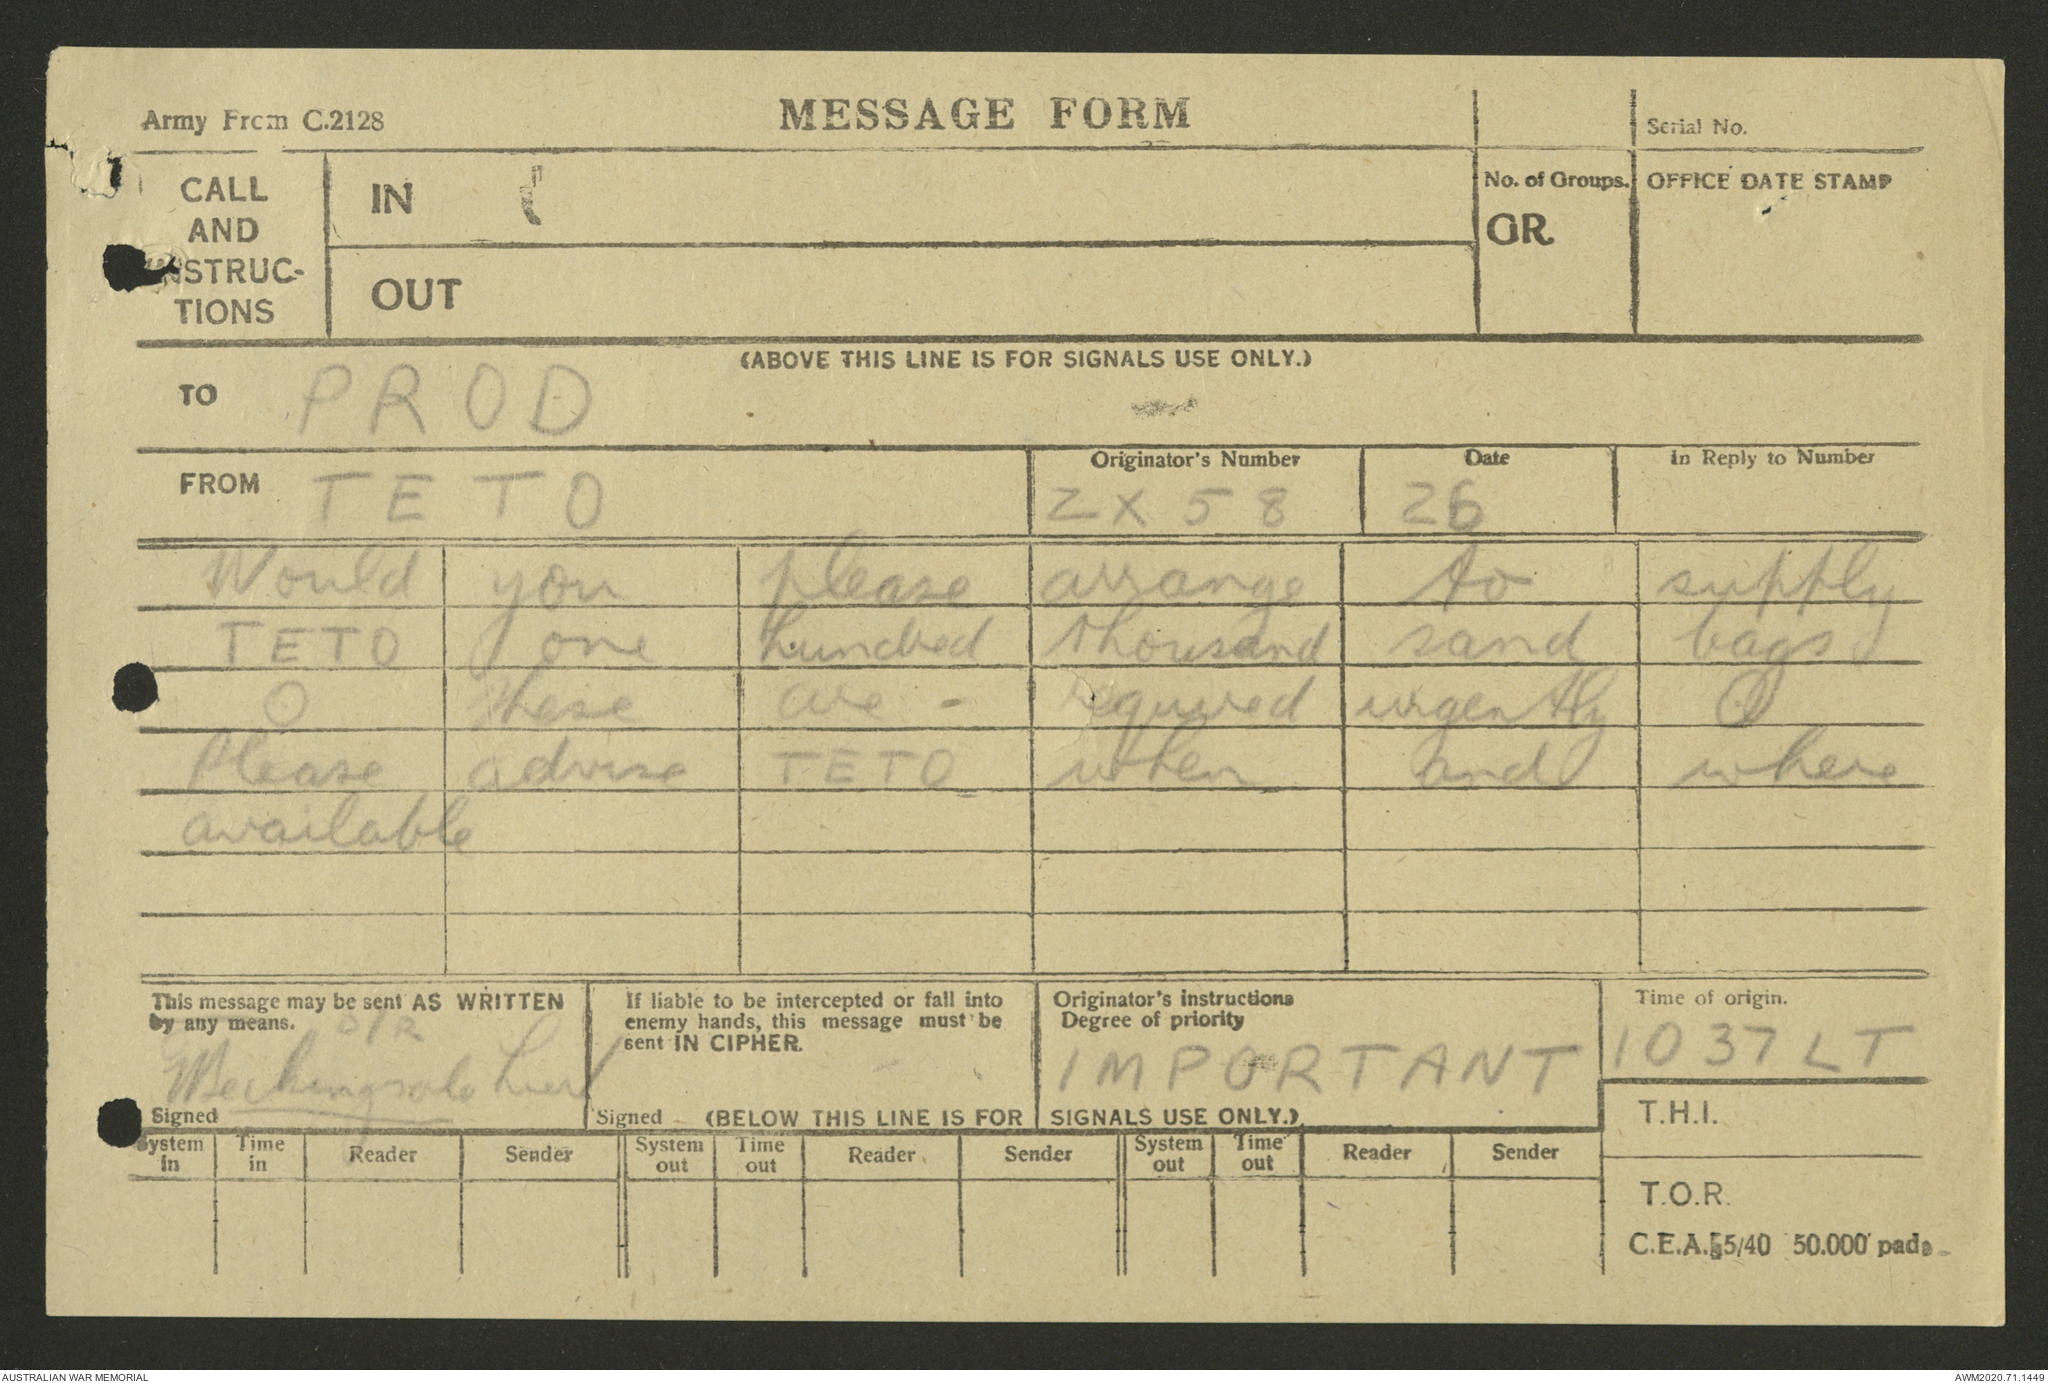 Army From C.2128
MESSAGE FORM
Serial No.
CALL
AND
INSTRUC-
TIONS
IN
OUT
No. of Groups.
GR.
OFFICE DATE STAMP
(ABOVE THIS LINE IS FOR SIGNALS USE ONLY.)
TO PROD
FROM TETO
Originator's Number
ZX58
Date
26
In Reply to Number
Would you please arrange to supply
TETO one hundred thousand sand bags
O these are - required urgently O
Please advise TETO when and where
available
This message may be sent AS WRITTEN
by any means.
Signed
If liable to be intercepted or fall into
enemy hands, this message must be
sent IN CIPHER.
Signed
Originator's instructions
Degree of priority
IMPORTANT
Time of origin.
1037 LT
(BELOW THIS LINE IS FOR SIGNALS USE ONLY.)
T.H.I.
System in Time in Reader Sender System out Time out Reader Sender System out Time out Reader Sender
T.O.R.
C.E.A. 5/40 50.000 pads
AUSTRALIAN WAR MEMORIAL
AWM2020.71.1449